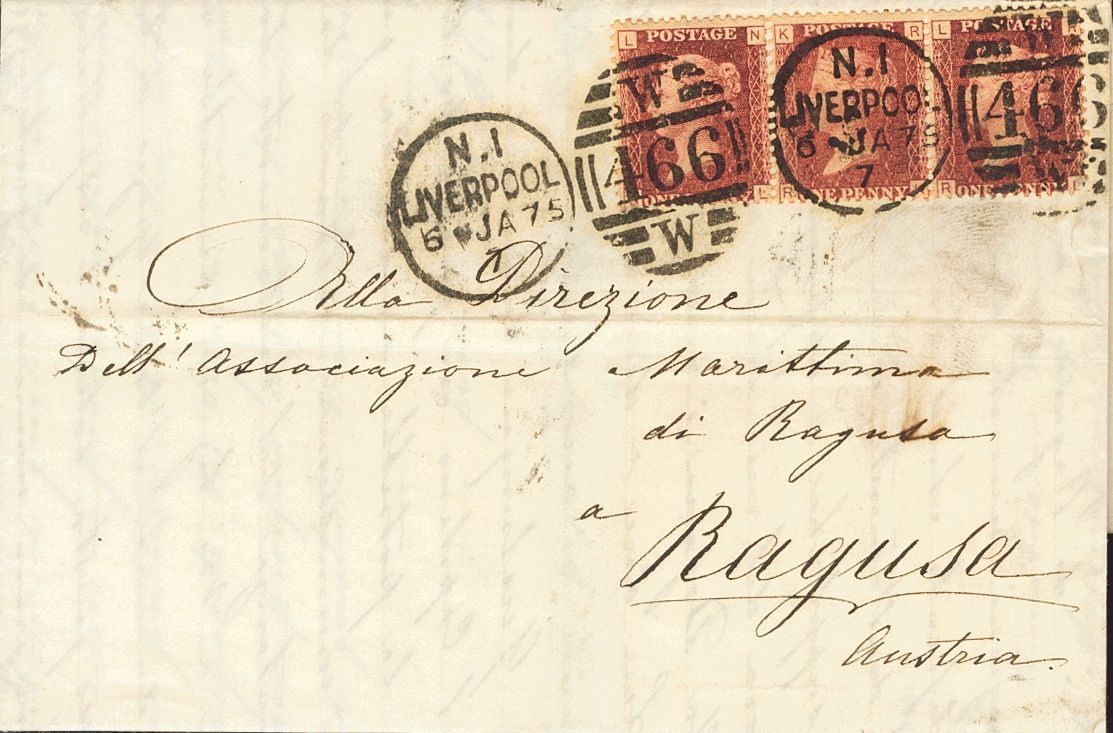 L POSTAGE N
K POSTAGE R
L POSTAGE R
W
466
W
N.1
LIVERPOOL
6 JA 75
7
W
466
W
N.1
LIVERPOOL
6 JA 75
7
ONE PENNY L
R ONE PENNY
R ONE PENNY L
Alla Direzione
Dell' Associazione Marittima
di Ragusa
a Ragusa
Austria.